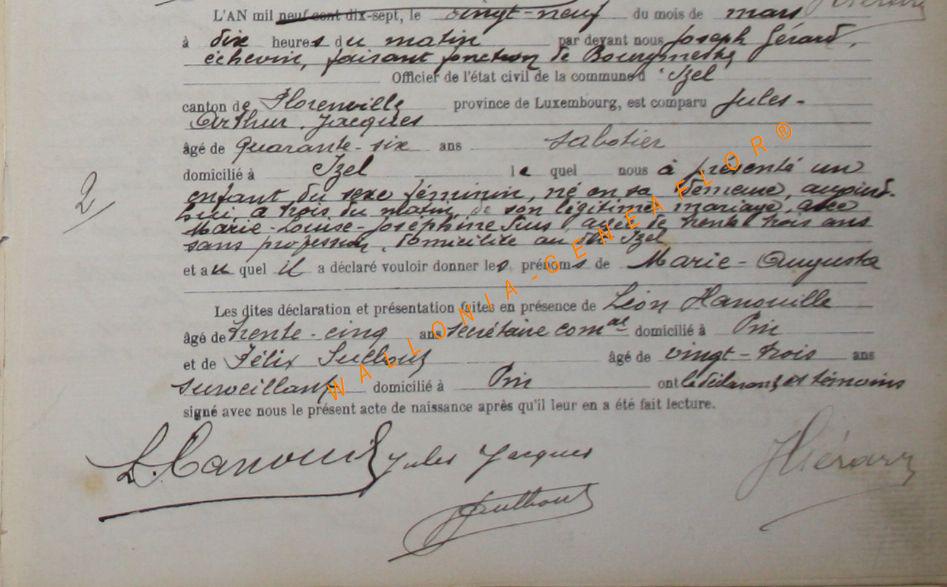 L'AN mil neuf cent dix-sept, le vingt-neuf du mois de mars
à dix heures du matin par devant nous Joseph Gérard,
échevin, faisant fonction de Bourgmestre
Officier de l'état civil de la commune d'Izel
canton de Florenville province de Luxembourg, est comparu Jules-
Arthur Jacques
âgé de quarante-six ans sabotier
domicilié à Izel le quel nous a présenté un
enfant du sexe féminin, né en sa demeure, aujourd-
hui, à trois du matin, de son légitime mariage avec
Marie-Louise-Joséphine âgée de trente trois ans
sans profession, domiciliée au dit Izel
et au quel il a déclaré vouloir donner les prénoms de Marie-Augusta
Les dites déclaration et présentation faites en présence de Léon Hanouille
âgé de trente-cinq ans secrétaire comal domicilié à Pin
2
et de Félix âgé de vingt-trois ans
surveillant domicilié à Pin ont le déclarant et témoins
signé avec nous le présent acte de naissance après qu'il leur en a été fait lecture.
Jules Jacques
WALLONIA-GENEAFLOR®